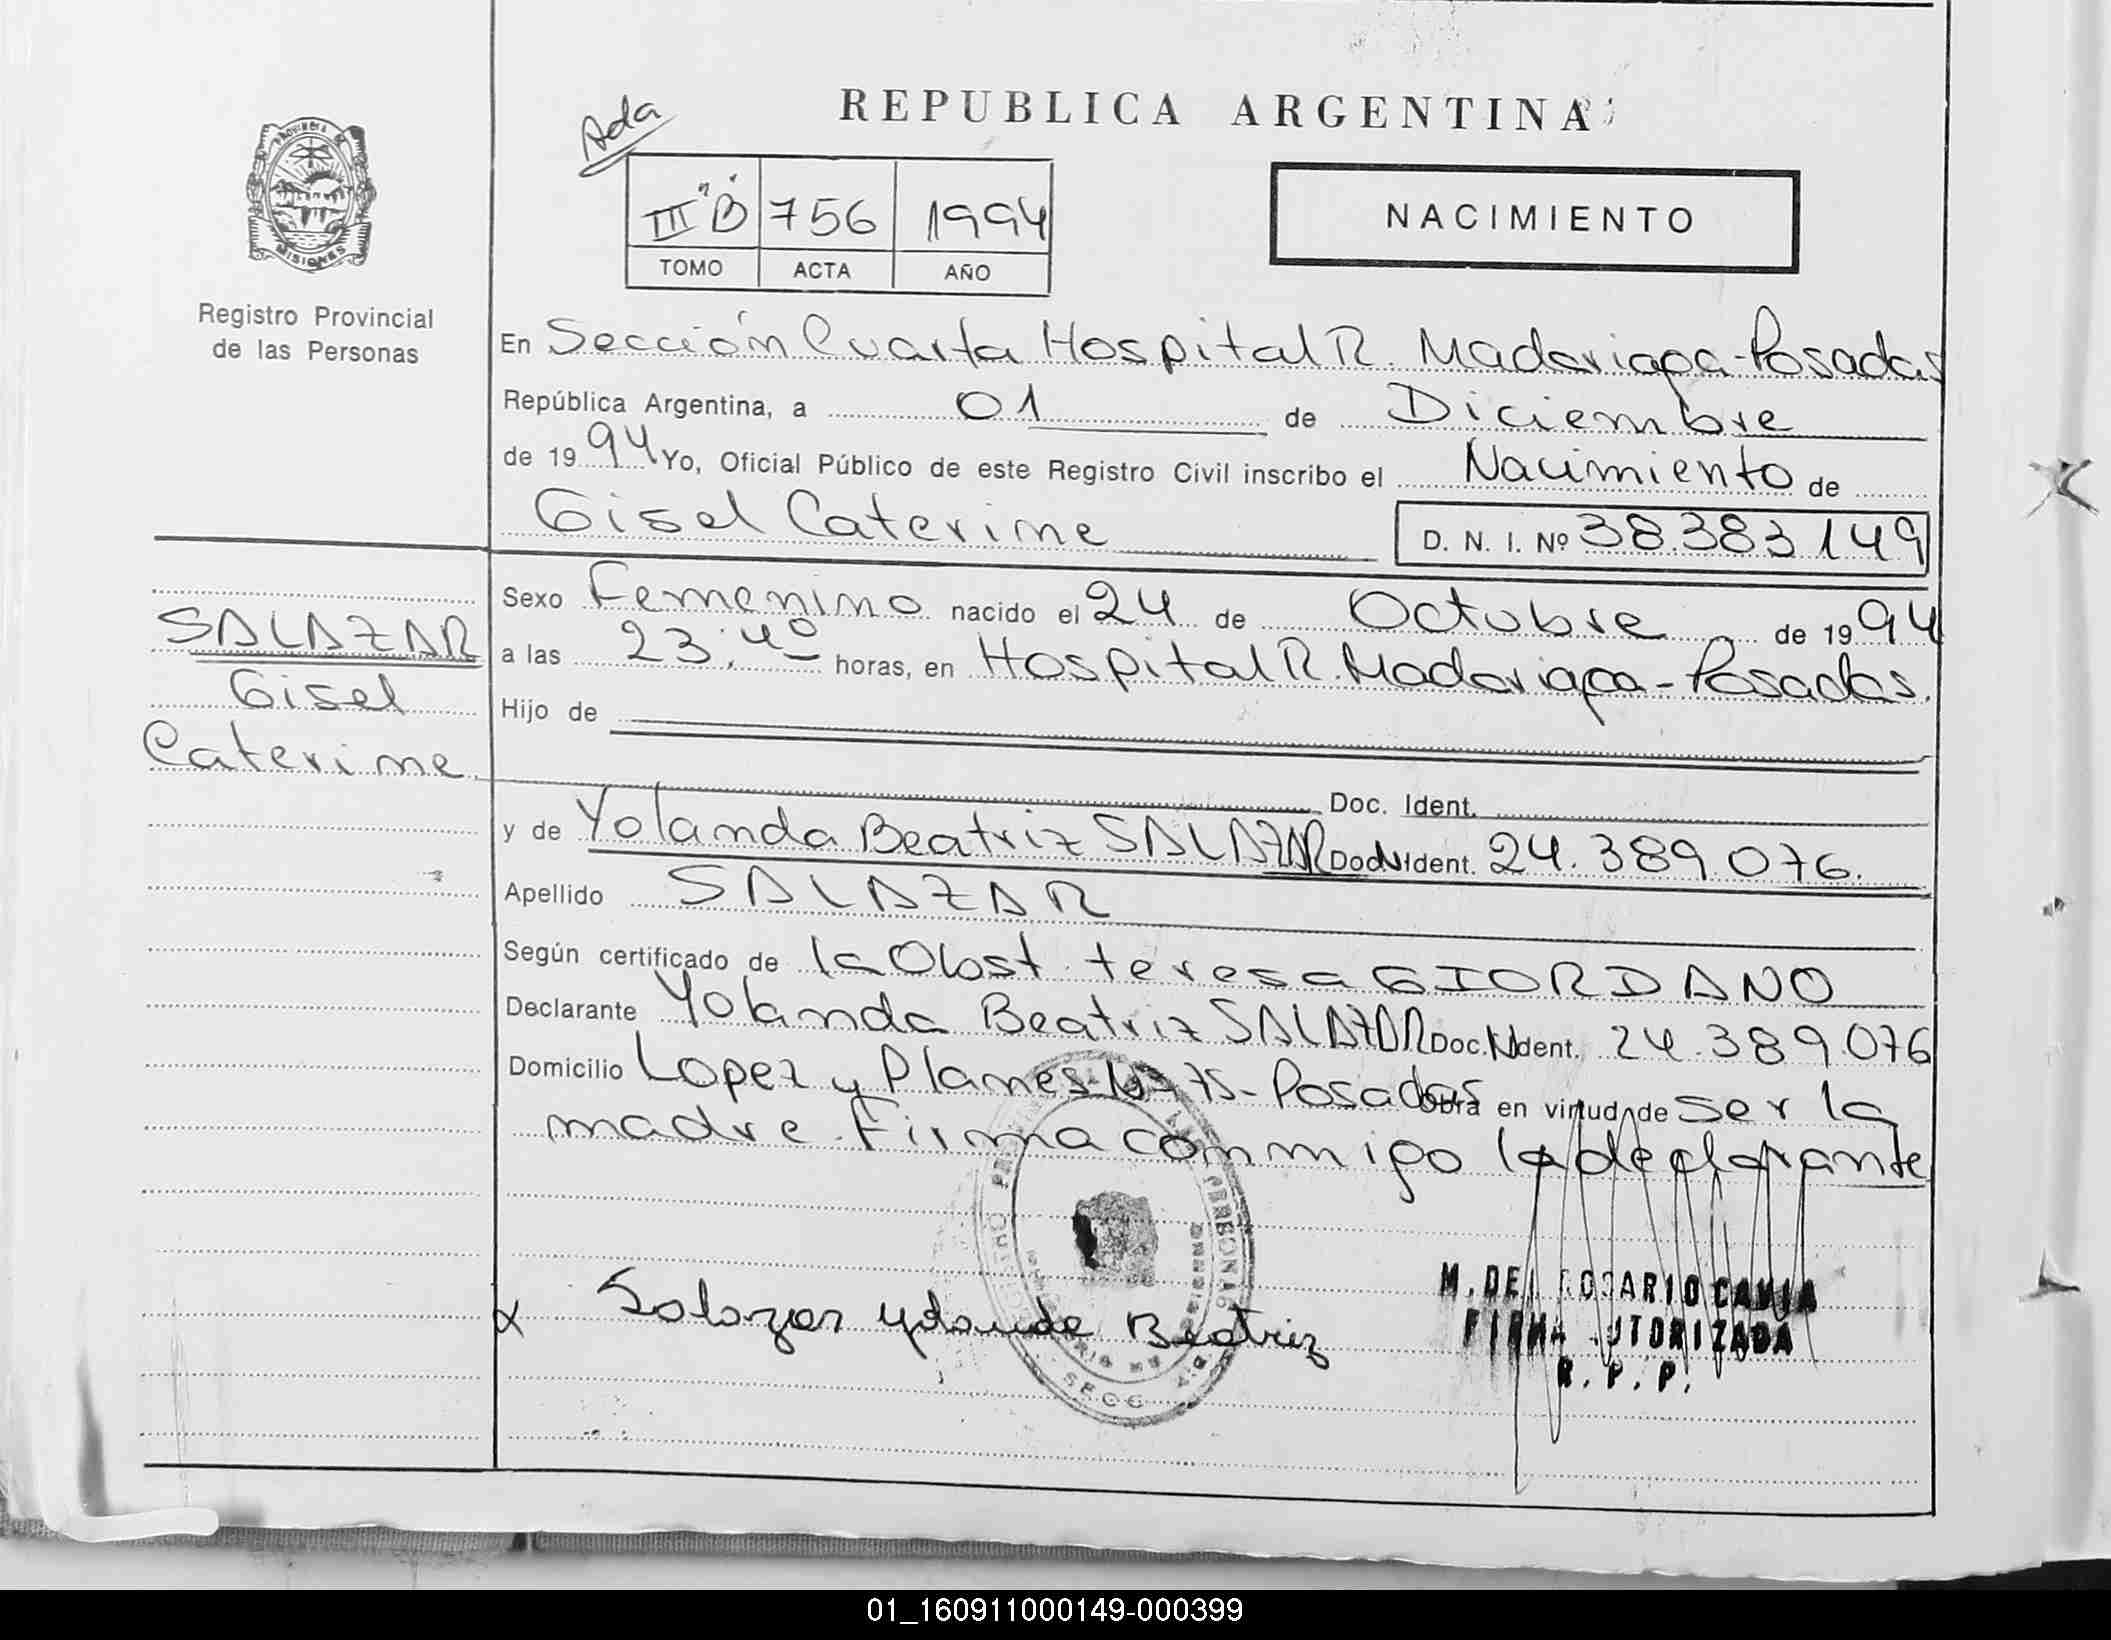 REPUBLICA ARGENTINA
Ada
III "B" 756 1994
TOMO ACTA AÑO
NACIMIENTO
MISIONES
Registro Provincial
de las Personas
En Sección Cuarta Hospital R. Madariaga - Posadas
República Argentina, a 01 de Diciembre
de 1994 Yo, Oficial Público de este Registro Civil inscribo el Nacimiento de
Gisel Caterine D. N. I. Nº 38.383149
SALAZAR
Gisel
Caterine
Sexo Femenino nacido el 24 de Octubre de 1994
a las 23:40 horas, en Hospital R. Madariaga - Posadas.
Hijo de
Doc. Ident.
y de Yolanda Beatriz SALAZAR Doc. Ident. 24.389.076.
Apellido SALAZAR
Según certificado de la Obst. teresa GIORDANO
Declarante Yolanda Beatriz SALAZAR Doc. Ident. 24.389.076
Domicilio Lopez y Planes Nº 75 - Posadas obra en virtud de ser la
madre. Firma conmigo la declarante
Salazar Yolanda Beatriz
M. DEL ROSARIO CAVIA
FIRMA AUTORIZADA
R. P. P.
01_160911000149-000399